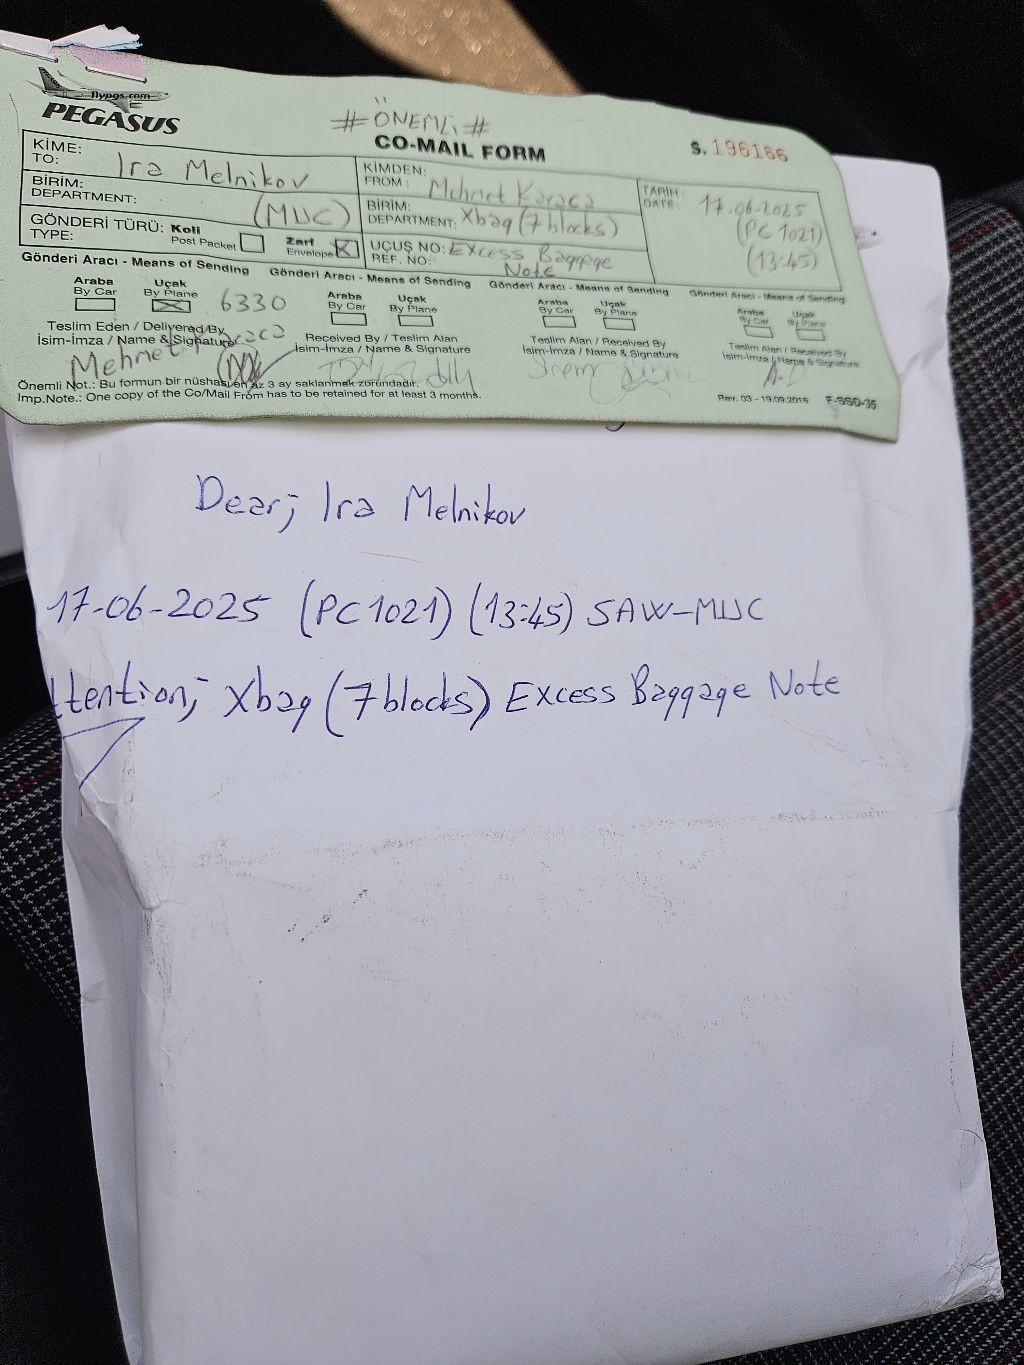 flypgs.com
PEGASUS
#ÖNEMLİ#
CO-MAIL FORM
S. 196186
KİME:
TO: Ira Melnikov
BİRİM:
DEPARTMENT: (MUC)
GÖNDERİ TÜRÜ:
TYPE:
Koli
Post Packet
Zarf
Envelope X
KİMDEN:
FROM: Mehmet Karaca
BİRİM:
DEPARTMENT: Xbag (7 blocks)
UÇUŞ NO: Excess Baggage
REF. NO: Note
TARİH:
DATE: 17.06.2025
(PC 1021)
(13:45)
Gönderi Aracı - Means of Sending
Araba
By Car
Uçak
By Plane
6330
Teslim Eden / Delivered By
İsim-İmza / Name & Signature
Mehmet Karaca
Gönderi Aracı - Means of Sending
Araba
By Car
Uçak
By Plane
Received By / Teslim Alan
İsim-İmza / Name & Signature
Gönderi Aracı - Means of Sending
Araba
By Car
Uçak
By Plane
Teslim Alan / Received By
İsim-İmza / Name & Signature
Gönderi Aracı - Means of Sending
Araba
By Car
Uçak
By Plane
Teslim Alan / Received By
İsim-İmza / Name & Signature
Önemli Not.: Bu formun bir nüshası en az 3 ay saklanmak zorundadır.
Imp.Note.: One copy of the Co/Mail From has to be retained for at least 3 months.
Rev. 03 - 19.09.2016 F-SSD-35
Dear; Ira Melnikov
17-06-2025 (PC1021) (13:45) SAW-MUC
ttention; Xbag (7 blocks) Excess Baggage Note